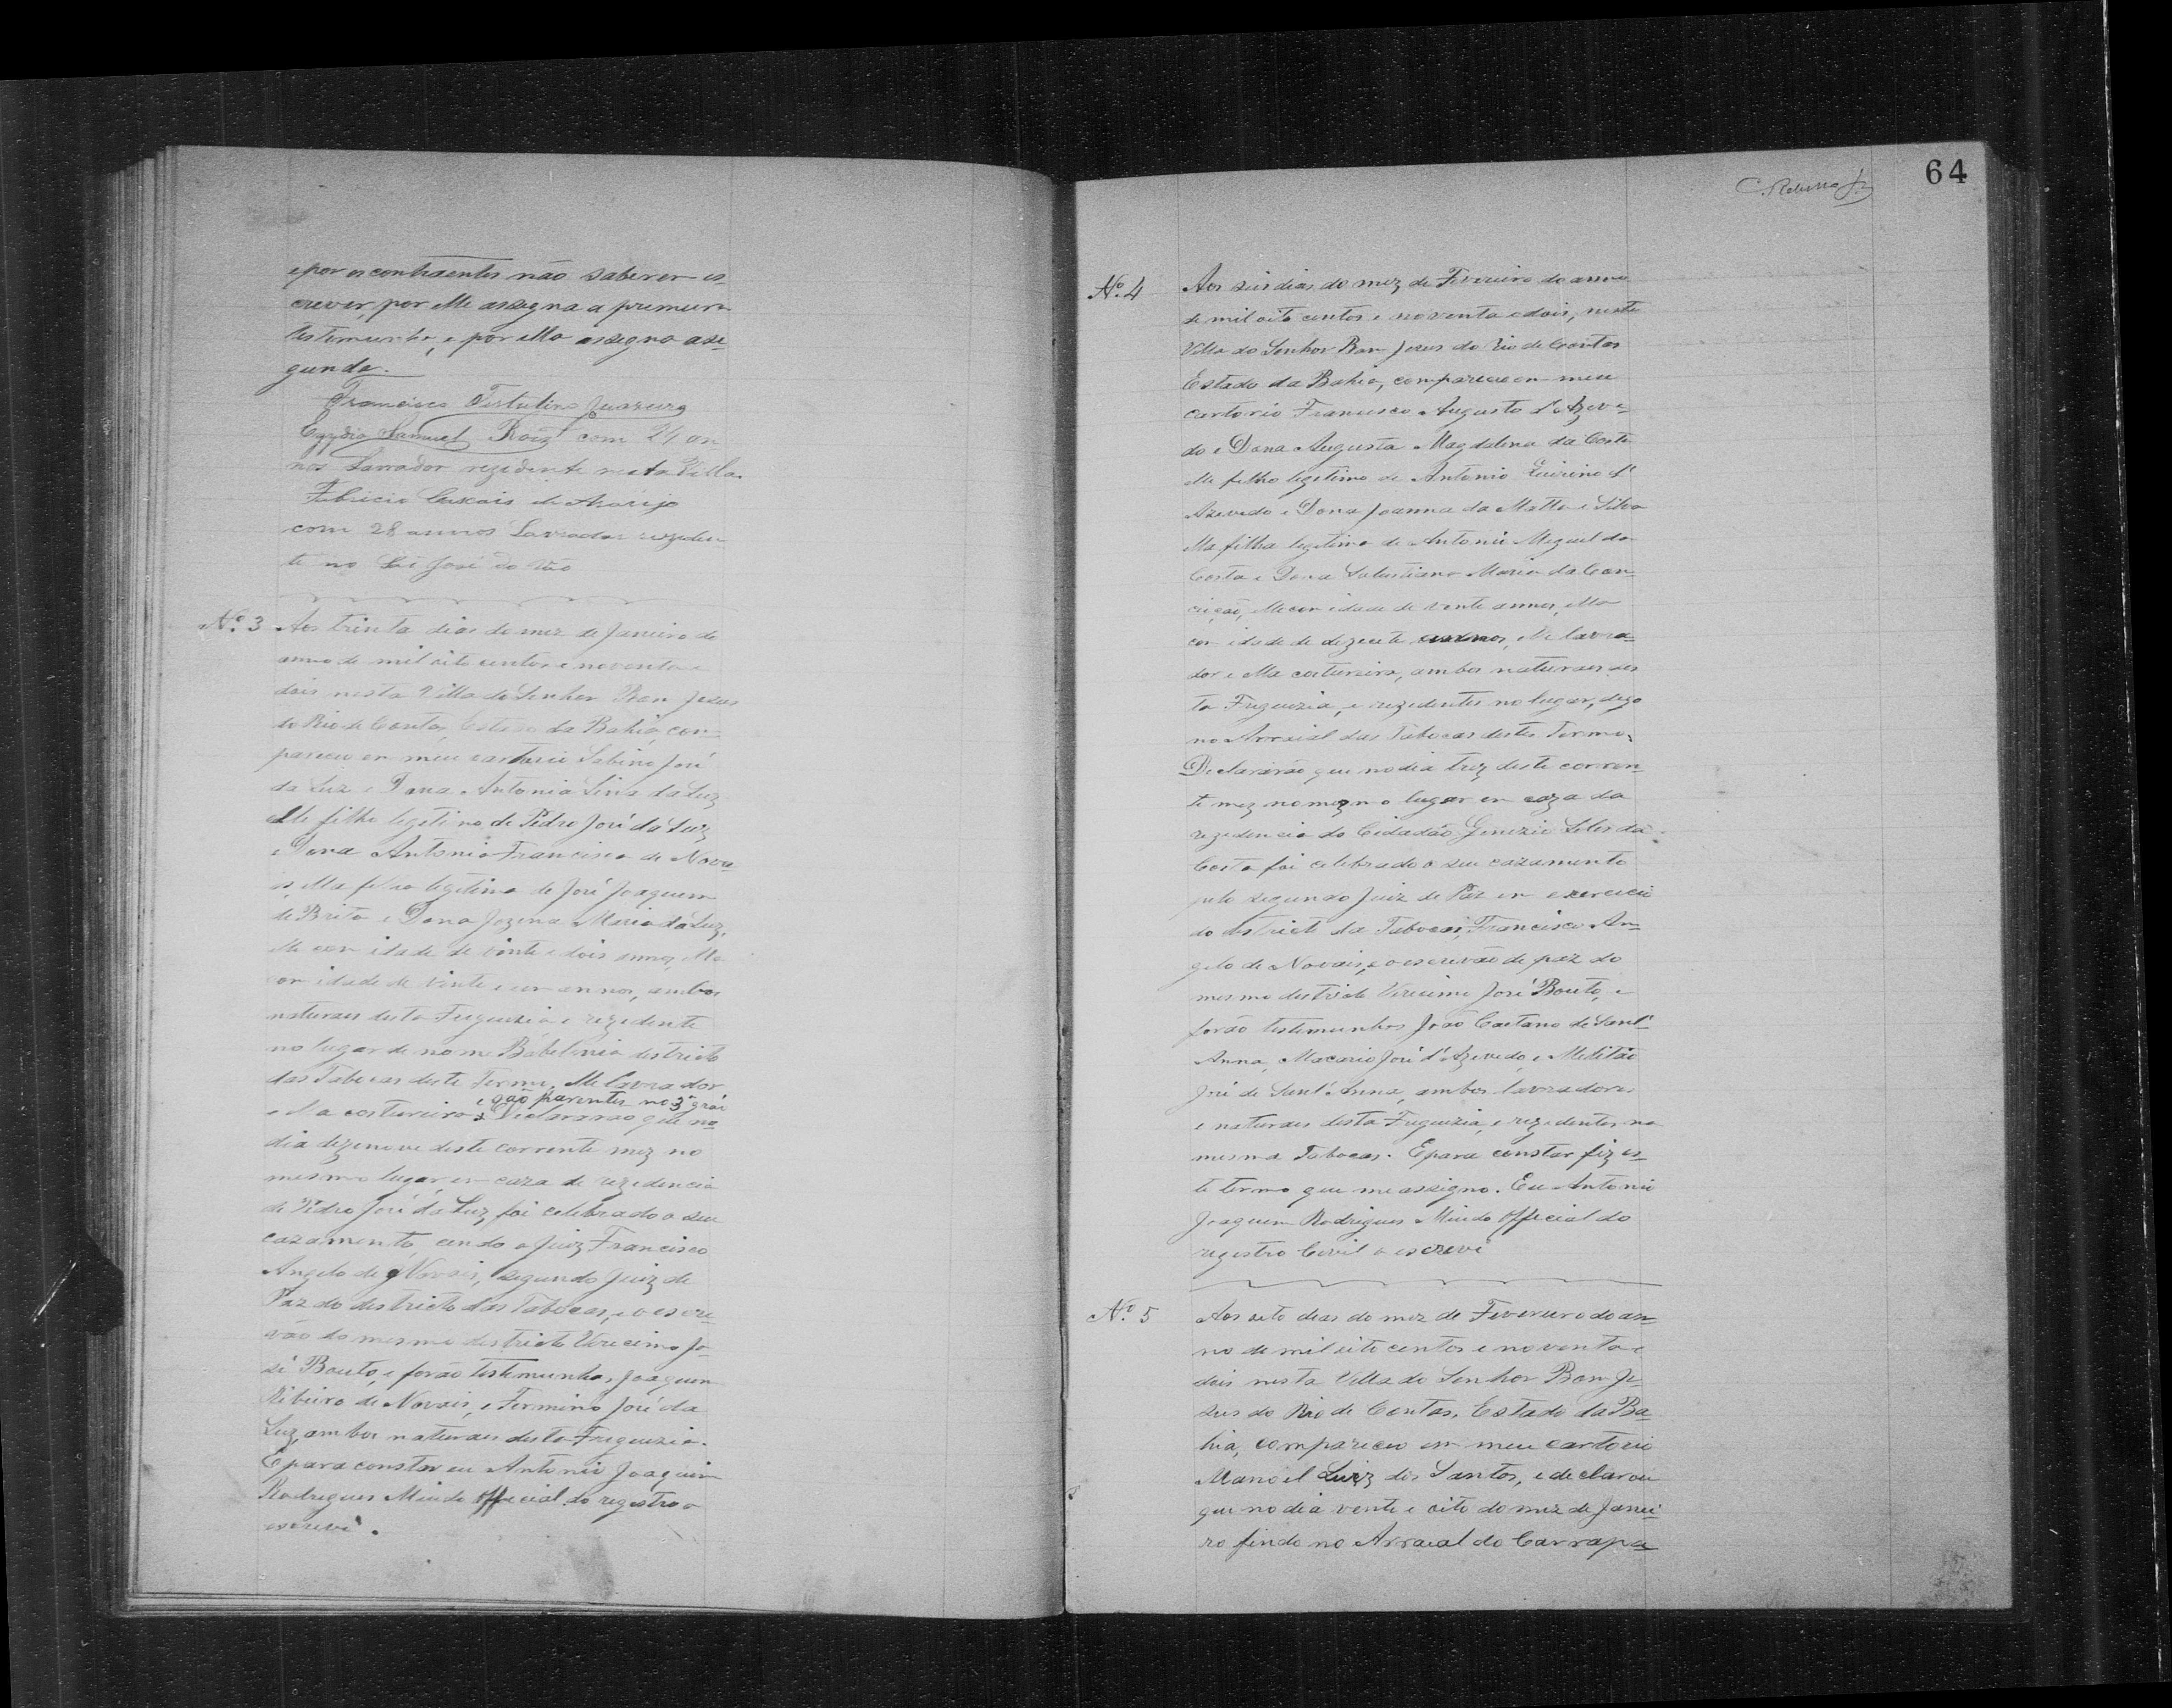 e por os contraentes não saberem es-
crever, por elle assegna a primeira
testemunha, e por ella assegna a se-
gunda.
Francisco Tertulino
Egydio Samuel Roiz com 24 an
nos Lavrador rezidente nesta Villa.
Fabricio de Araujo
com 28 annos Lavrador reziden
te no São José do
Nº. 3 Aos trinta dias do mez de Janeiro do
anno de mil oito centos e noventa e
dois nesta Villa do Senhor Bom Jesus
do Rio de Contas, Estado da Bahia, com
pareceu em meu cartorio Sabino José
da Luz e Dona Antonia Lina da Luz
elle filho legitimo de Pedro José da Luz,
e Dona Antonia Francisca de Nova-
is, ella filha legitima de José Joaquim
de Brito e Dona Jozena Maria da Luz,
elle com idade de vinte e dois annos, ella
com idade de vinte e um annos, ambos
naturaes desta Freguezia e rezidente
no lugar de nome districto
das Tabocas deste Termo. Elle lavrador
e são parentes no 3º gráo
e ella costureira. Declararão que no
dia dezenove deste corrente mez no
mesmo lugar em caza de rezidencia
de Pedro José da Luz, foi celebrado o seu
cazamento, cendo o Juiz Francisco
Angelo de Novais, segundo Juiz de
Paz do districto das Tabocas, e o escri-
vão do mesmo districto Virecimo Jo-
sé Bouto, e forão testimunhas, Joaquim
Ribeiro de Novais, e Fermino José da
Luz, ambos naturaes desta Freguezia.
E para constar eu Antonio Joaquim
Rodrigues Miudo official do registro o
escrevi.
64
Nº. 4 Aos seis dias do mez de Fevereiro do anno
de mil oito centos e noventa e dois, nesta
Villa do Senhor Bom Jesus do Rio de Contas
Estado da Bahia, compareceu em meu
cartorio Francisco Augusto d'Azeve-
do e Dona Augusta Magdalena da Costa
elle filho legitimo de Antonio Quirino d'
Azevedo e Dona Joanna da Matta e Silva
ella filha legitima de Antonio Miguel da
Costa e Dona Salustiana Maria da Con-
ceição, elle com idade de vinte annos, ella
com idade de dezecete annos, elle lavra-
dor e ella costureira, ambos naturaes des
ta Freguezia, e rezidentes no lugar, digo
no Arraial das Tabocas deste Termo.
Declararão que no dia trez deste corren-
te mez no mezmo lugar em caza da
rezidencia do Cidadão Genezio Teles da
Costa foi celebrado o seu cazamento
pelo segundo Juiz de Paz em exercicio
do districto da Tabocas, Francisco An-
gelo de Novais, e o escrivão de paz do
mesmo districto Virecimo José Bouto, e
forão testemunhas João Caetano de Sant'
Anna, Macario José d'Azevedo, e Melitão
José de Sant'Anna, ambos lavradores
e naturaes desta Freguezia, e rezidentes na
mesma Tabocas. E para constar fiz es-
te termo que me assigno. Eu Antonio
Joaquim Rodrigues Miudo official do
registro Civil o escrevi
Nº. 5 Aos sete dias do mez de Fevereiro do an-
no de mil oito centos e noventa e
dois nesta Villa do Senhor Bom Je-
sus do Rio de Contas, Estado da Ba-
hia, compareceu em meu cartorio
Manoel Luiz dos Santos, e declarou
que no dia vente e oito do mez de Janei-
ro findo no Arraial do Carrapa-